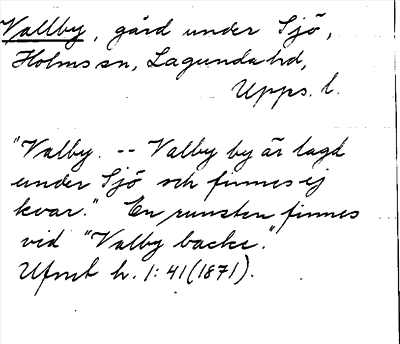 Vallby, gård under Sjö,
Holms sn, Lagunda hd,
Upps. l.
"Valby. -- Valby by är lagd
under Sjö och finnes ej
kvar." En runsten finnes
vid "Valby backe."
Ufmt h. 1: 41 (1871).